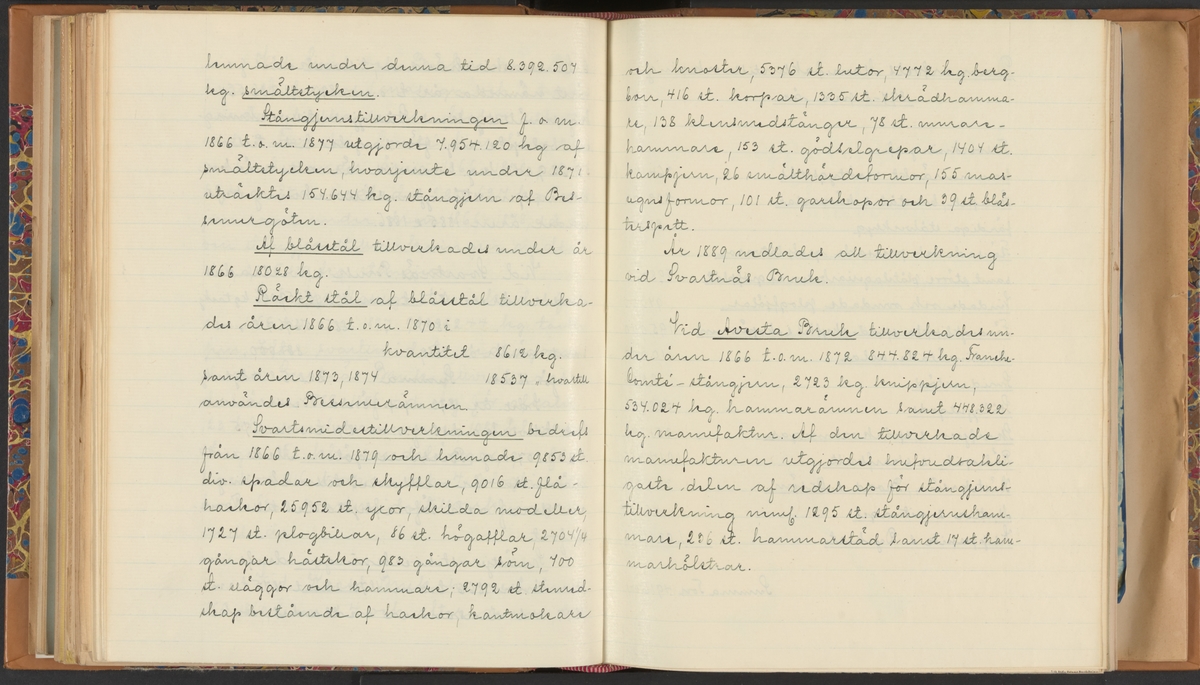 lemnade under denna tid 8.392.504
kg. smältstycken.
Stångjernstillverkningen f.o.m.
1866 t.o.m. 1877 utgjorde 7.954.120 kg af
smältstycken, hvarjemte under 1871
uträcktes 154.644 kg. stångjern af Bes-
semergöten.
Af blåsstål tillverkades under år
1866 18028 kg.
Räckt stål af blåsstål tillverka-
des åren 1866 t.o.m. 1870 i
kvantitet 8612 kg.
samt åren 1873, 1874 18537 " hvartill
användes Bessemerämnen.
Svartsmidestillverkningen bedrefs
från 1866 t.o.m. 1879 och lemnade 9853 st.
div. spadar och skyfflar, 9016 st. flå-
hackor, 25952 st. yxor, skilda modeller,
1727 st. plogbillar, 86 st. högafflar, 2704 1/4
gångar hästskor, 983 gångar söm, 400
st. släggor och hammare; 2792 st stenred-
skap bestående af hackor, kantmokare
och knoster, 5376 st. lutor, 4772 kg. berg-
borr, 416 st. korpar, 1335 st. skrädhamma-
re, 138 klensmedstänger, 78 st. murare-
hammare, 153 st. gödselgrepar, 1404 st.
kampjern, 26 smälthärdsformor, 155 mas-
ugnsformor, 101 st. garskopor och 39 st. blås-
terspett.
År 1889 nedlades all tillverkning
vid Svartnäs Bruk.
Vid Avesta Bruk tillverkades un-
der åren 1866 t.o.m. 1872 844.824 kg. Franche-
Comté-stångjern, 2723 kg knippjern,
534.024 kg. hammarämnen samt 448.322
kg. manufaktur. Af den tillverkade
manufakturen utgjordes hufvudsakli-
gaste delen af redskap för stångjerns-
tillverkning neml. 1295 st. stångjernsham-
mare, 286 st. hammarstäd samt 17 st. ham-
marhölstrar.